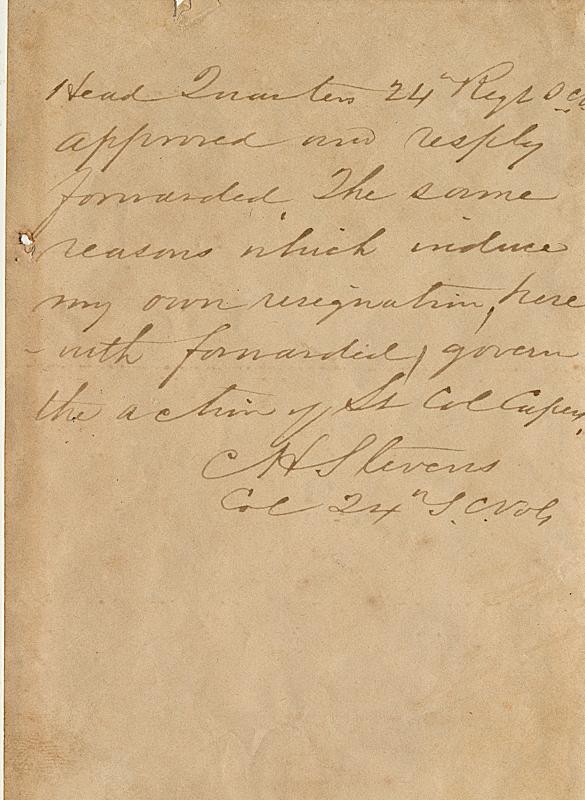 Head Quarters 24th Regt S C
approved and resply
forwarded. The same
reasons which induce
my own resignation, here
-with forwarded, govern
the action of Lt Col Capers.
C H Stevens
Col 24th S. C Vols